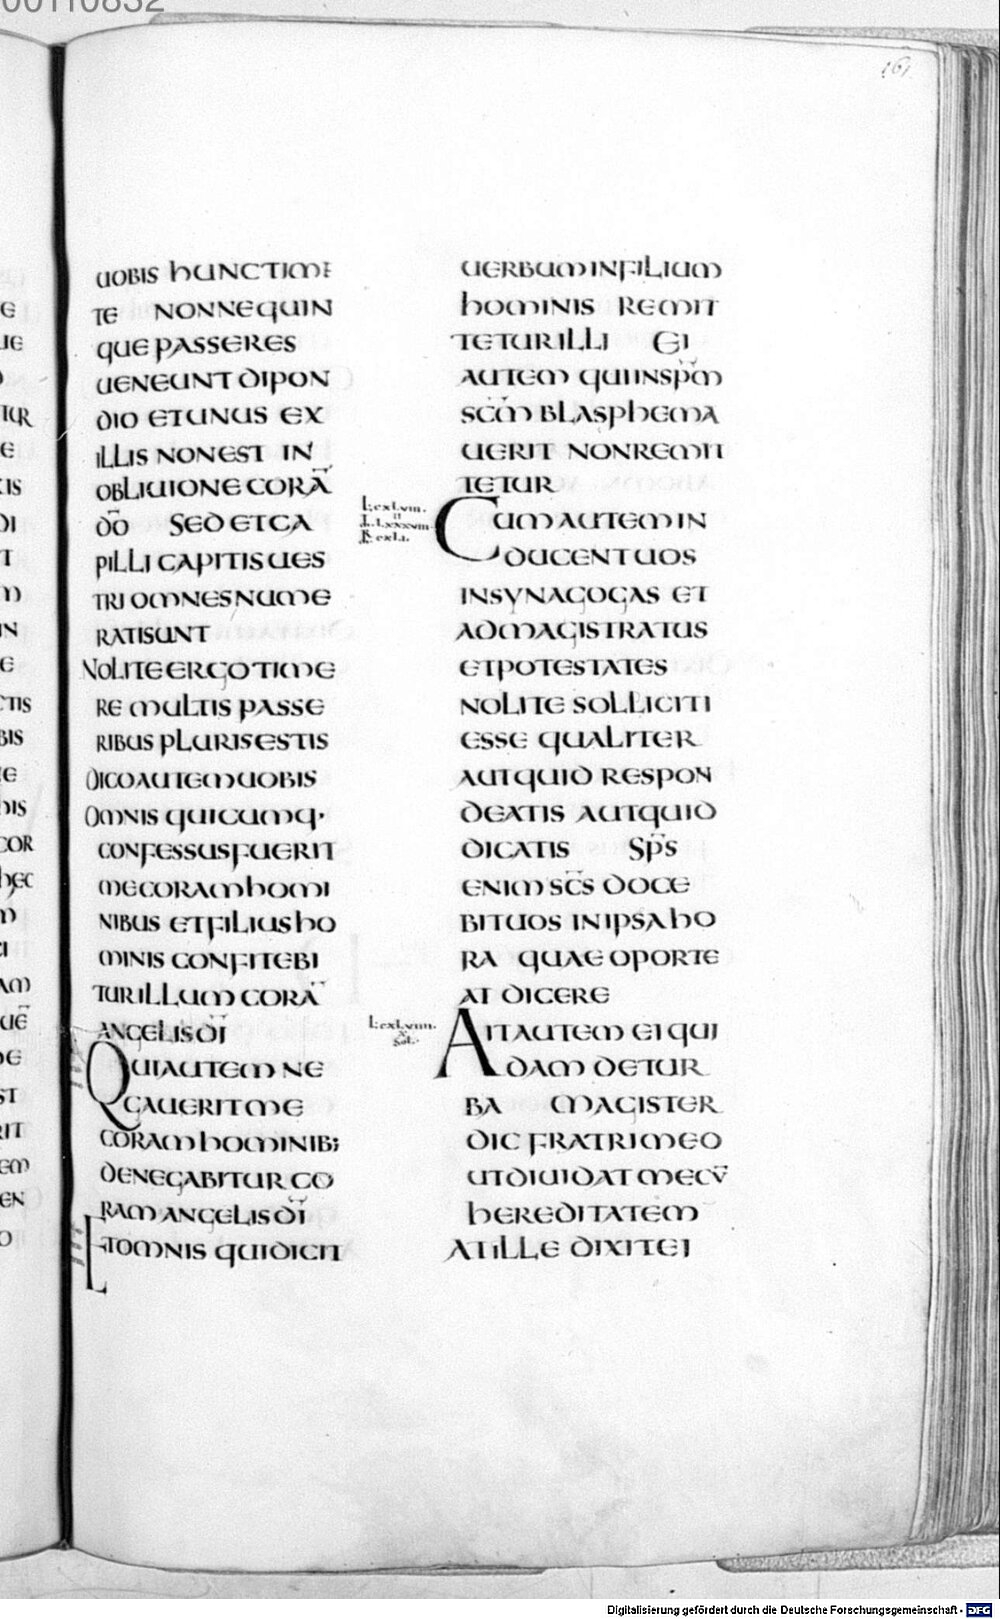 00110832
161
UOBIS hUNCTIME
TE NONNEQUIN
QUE PASSERES
UENEUNT DIPON
DIO ET UNUS EX
ILLIS NON EST IN
OBLIUIONE CORĀ
DŌ SED ET CA
PILLI CAPITIS UES
TRI OMNES NUME
RATI SUNT
NOLITE ERGO TIME
RE MULTIS PASSE
RIBUS PLURIS ESTIS
DICO AUTEM UOBIS
OMNIS QUICUMQ·
CONFESSUS FUERIT
ME CORAM HOMI
NIBUS ET FILIUS HO
MINIS CONFITEBI
TUR ILLUM CORĀ
ANGELIS DĪ
QUI AUTEM NE
GAUERIT ME
CORAM HOMINIB;
DENEGABITUR CO
RAM ANGELIS DĪ
ET OMNIS QUI DICIT
UERBUM IN FILIUM
HOMINIS REMIT
TETUR ILLI EI
AUTEM QUI IN SPM̄
SCM̄ BLASPHEMA
UERIT NON REMIT
TETUR
L·cxlviii·
II
CUM AUTEM IN
DUCENT UOS
IN SYNAGOGAS ET
AD MAGISTRATUS
ET POTESTATES
NOLITE SOLLICITI
ESSE QUALITER
AUT QUID RESPON
DEATIS AUT QUID
DICATIS SPS̄
ENIM SCS̄ DOCE
BIT UOS IN IPSA HO
RA QUAE OPORTE
AT DICERE
L·cxlviiii·
X
Sol·
AIT AUTEM EI QUI
DAM DE TUR
BA MAGISTER
DIC FRATRI MEO
UT DIUIDAT MECŪ
HEREDITATEM
AT ILLE DIXIT EI
Digitalisierung gefördert durch die Deutsche Forschungsgemeinschaft - DFG